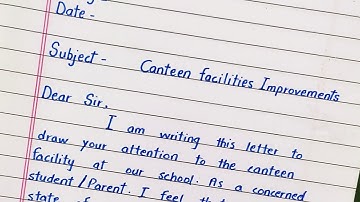 Date -
Subject - Canteen facilities Improvements
Dear Sir,
I am writing this letter to
draw your attention to the canteen
facility at our school. As a concerned
student/Parent. I feel
state